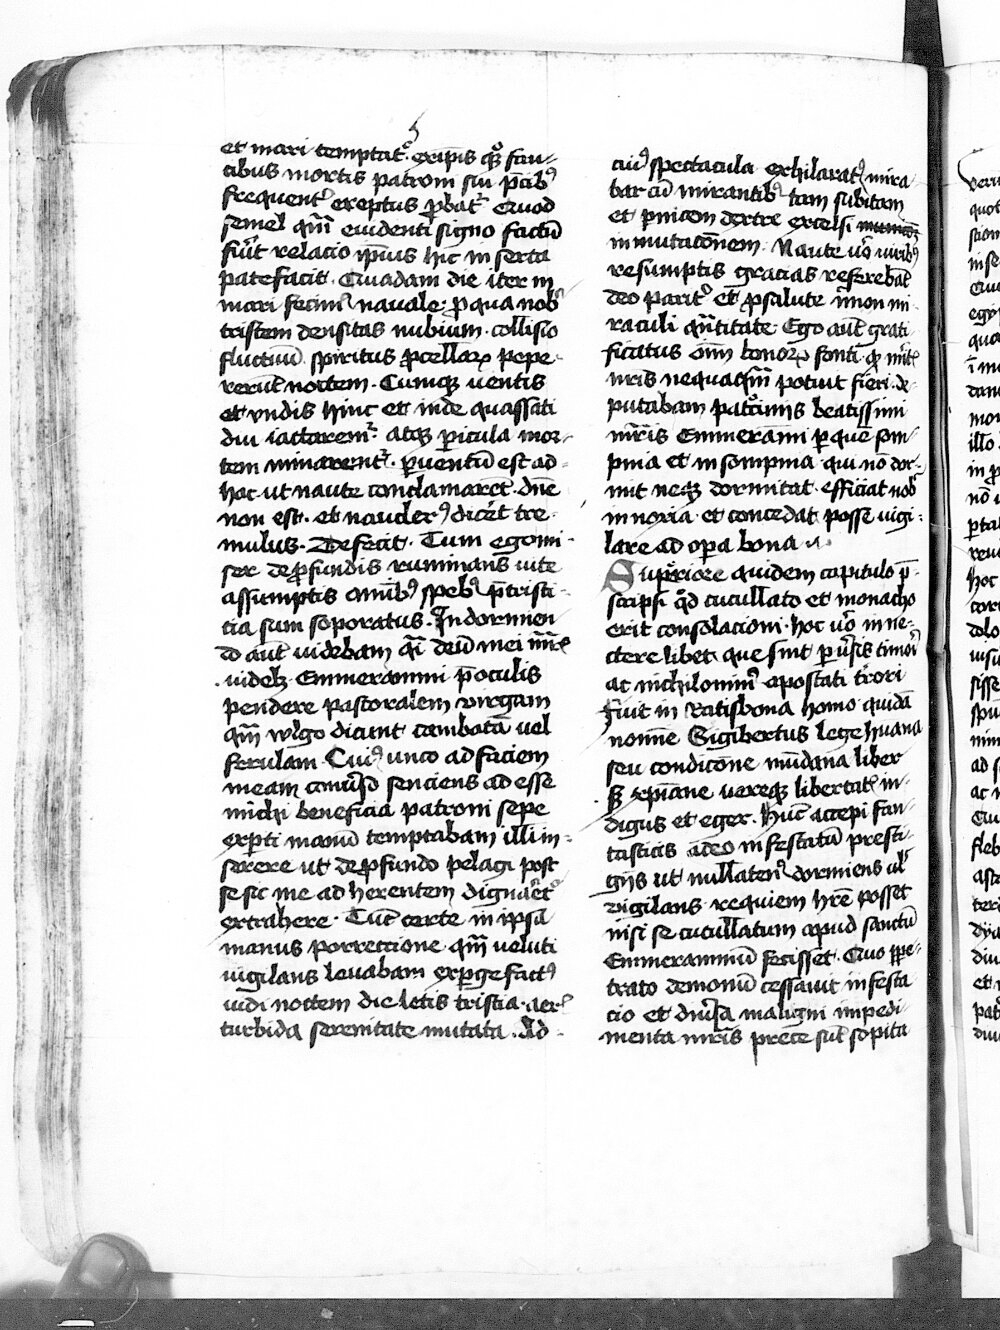 et mari temptatᷣ. eripis qꝫ fau-
cibus mortis patroni sui p̃cibꝰ
frequentᷣ ereptus ꝓbatᷣ Quod
semel qm̃ euidenti signo factũ
fũit relacio ip̃ius hic inserta
patefacit. Quadam die iter in
mari fecimꝰ nauale. ꝓ qua nobᷤ
tristem densitas nubium. collisio
fluctuũ spiritus ꝓcellaꝝ pepe
rerũt noctem. Cumqꝫ uentis
et vndis hinc et inde quassati
diu iactaremᷣ. atqꝫ ꝑicula mor-
tem minarentᷣ. ꝑuentũ est ad
hoc ut naute conclamarẽt. dñe
non est. et nauclerꝰ dicẽt tre-
mulus. Defecit. Tum ego mi-
ser de ꝓfundis ruminans uite
assumptis omĩbꝰ spebꝰ p̃tristi-
cia sum soporatus. In dormien
do aut̃ uidebam qͣi deũ mei mr̃is
uidelꝫ Emmerammi p̃ oculis
pendere pastoralem virgam
qm̃ wlgo dicunt cambatã vel
ferulam. Cuiꝰ unco ad faciem
meam conuso senciens ad esse
michi beneficia patroni sepe
exꝑti manũ temptabam illi in-
serere ut de ꝓfundo pelagi post
se sic me ad herentem dignarẽtᷣ
extrahere. Tũc certe in ip̃sa
manus porreccione qm̃ veluti
uigilans leuabam exꝑgefactꝰ
uidi noctem die letis tristia. aeris
turbida serenitate mutata. Ad
cuiꝰ spectacula exhilaratꝰ mira
bar cũ mirantibꝰ tam subitam
et p̃nicem dextre excelsi
inmutacõnem. Naute uͦo uiribꝰ
resumptis gracias referebãt
deo paritᷣ et ꝓ salute ñ non mi-
raculi qũtitate Ego aut̃ grati
ficatus om̃ bonoꝝ fonti. qꝫ m̃itis
meis nequaqͣm potuit fieri. de-
putabam patroͨiniis beatissimi
mr̃is Emmerammi ꝑ quẽ som-
pnia et insompnia qui nõ dor-
mit neqꝫ dormitat. efficiat nobᷤ
innoxia et concedat posse uigi-
lare ad oꝑa bona
Suꝑiore quidem capitulo p̃-
scripsi qd̃ cucullato et monacho
erit consolacioni. hoc uͦo inne-
ctere libet que sint ꝑuersis timori
ac nichilominꝰ apostati t̃rori
Fuit in Ratisbona homo quidã
nomĩe Sigibertus lege huana
seu condicõne mũdana liber
sꝫ xp̃iane uereqꝫ libertatis in-
digus et eger. Hũc accepi fan-
tasticis adeo infestatũ presti-
giis ut nullatenꝰ dormiens uł
vigilans requiem hr̃e posset
nisi se cucullatum apud sanctũ
Emmerammũ fecisset. Quo ꝑpe-
trato demoniũ cessauit infesta
cio et diuͥsa maligni impedi
menta mr̃is prece sũt sopita